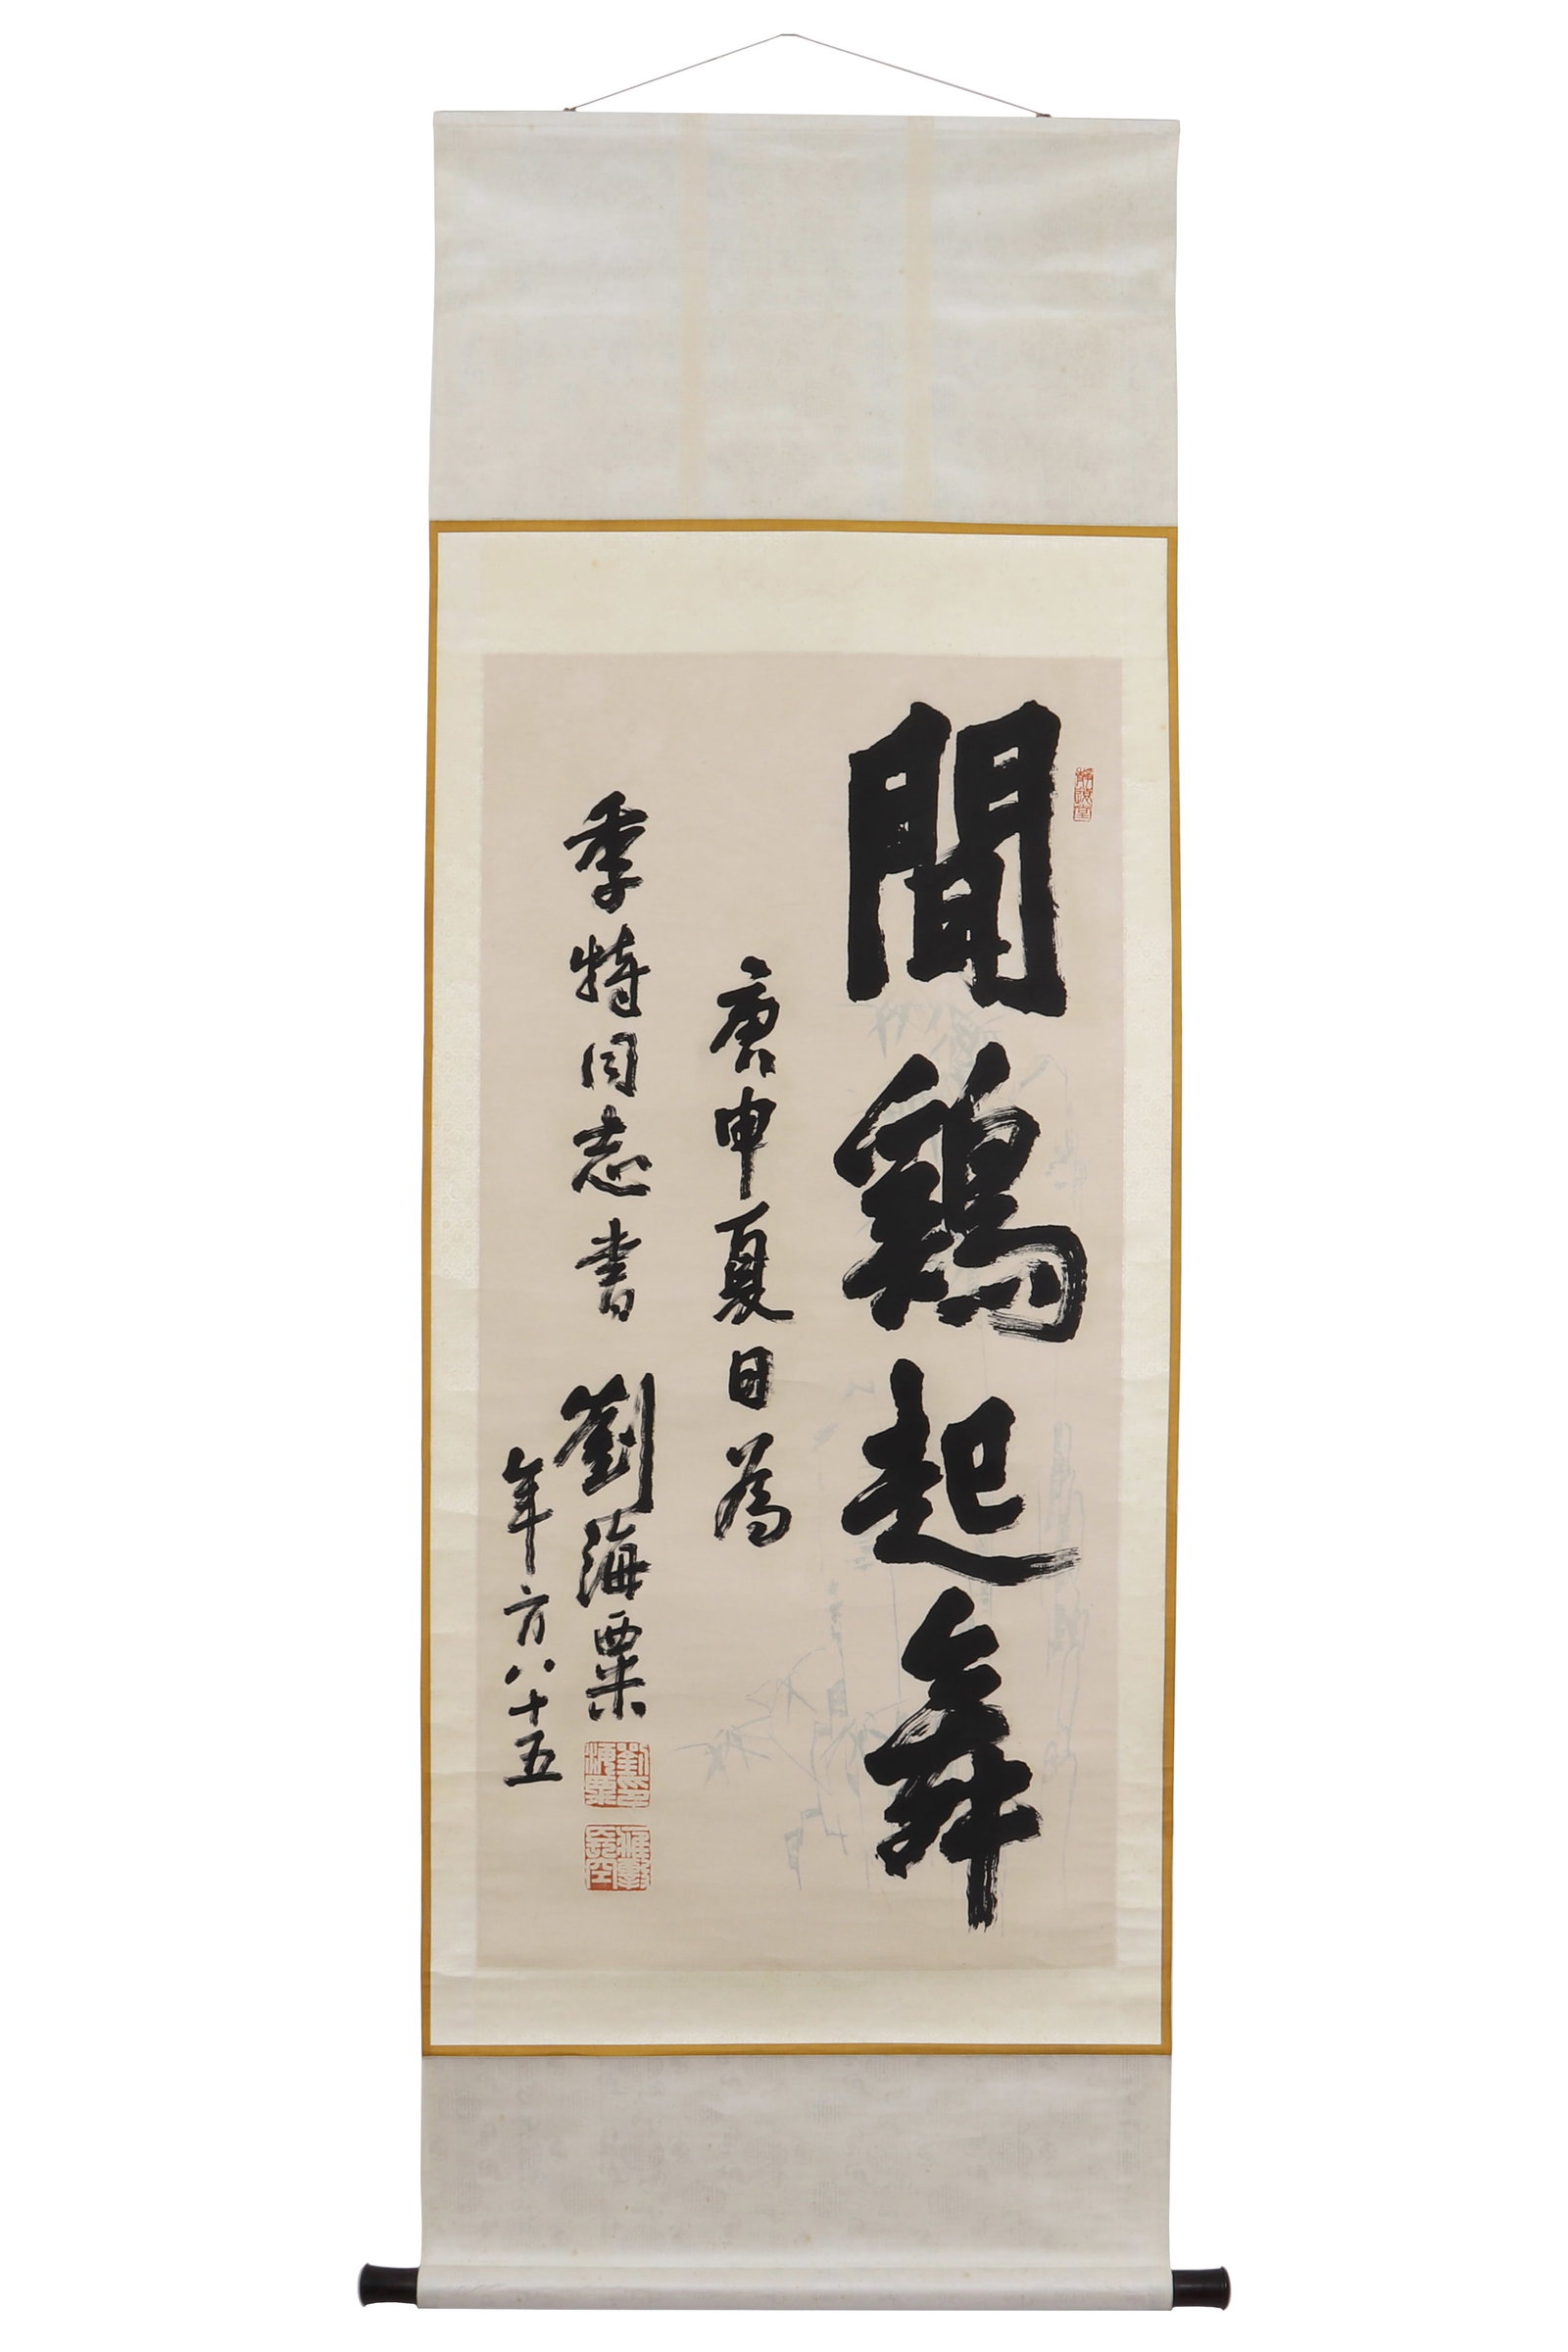 聞鷄起舞
庚申夏日爲
季特同志書 劉海粟
年方八十五
劉海粟印
靜遠堂